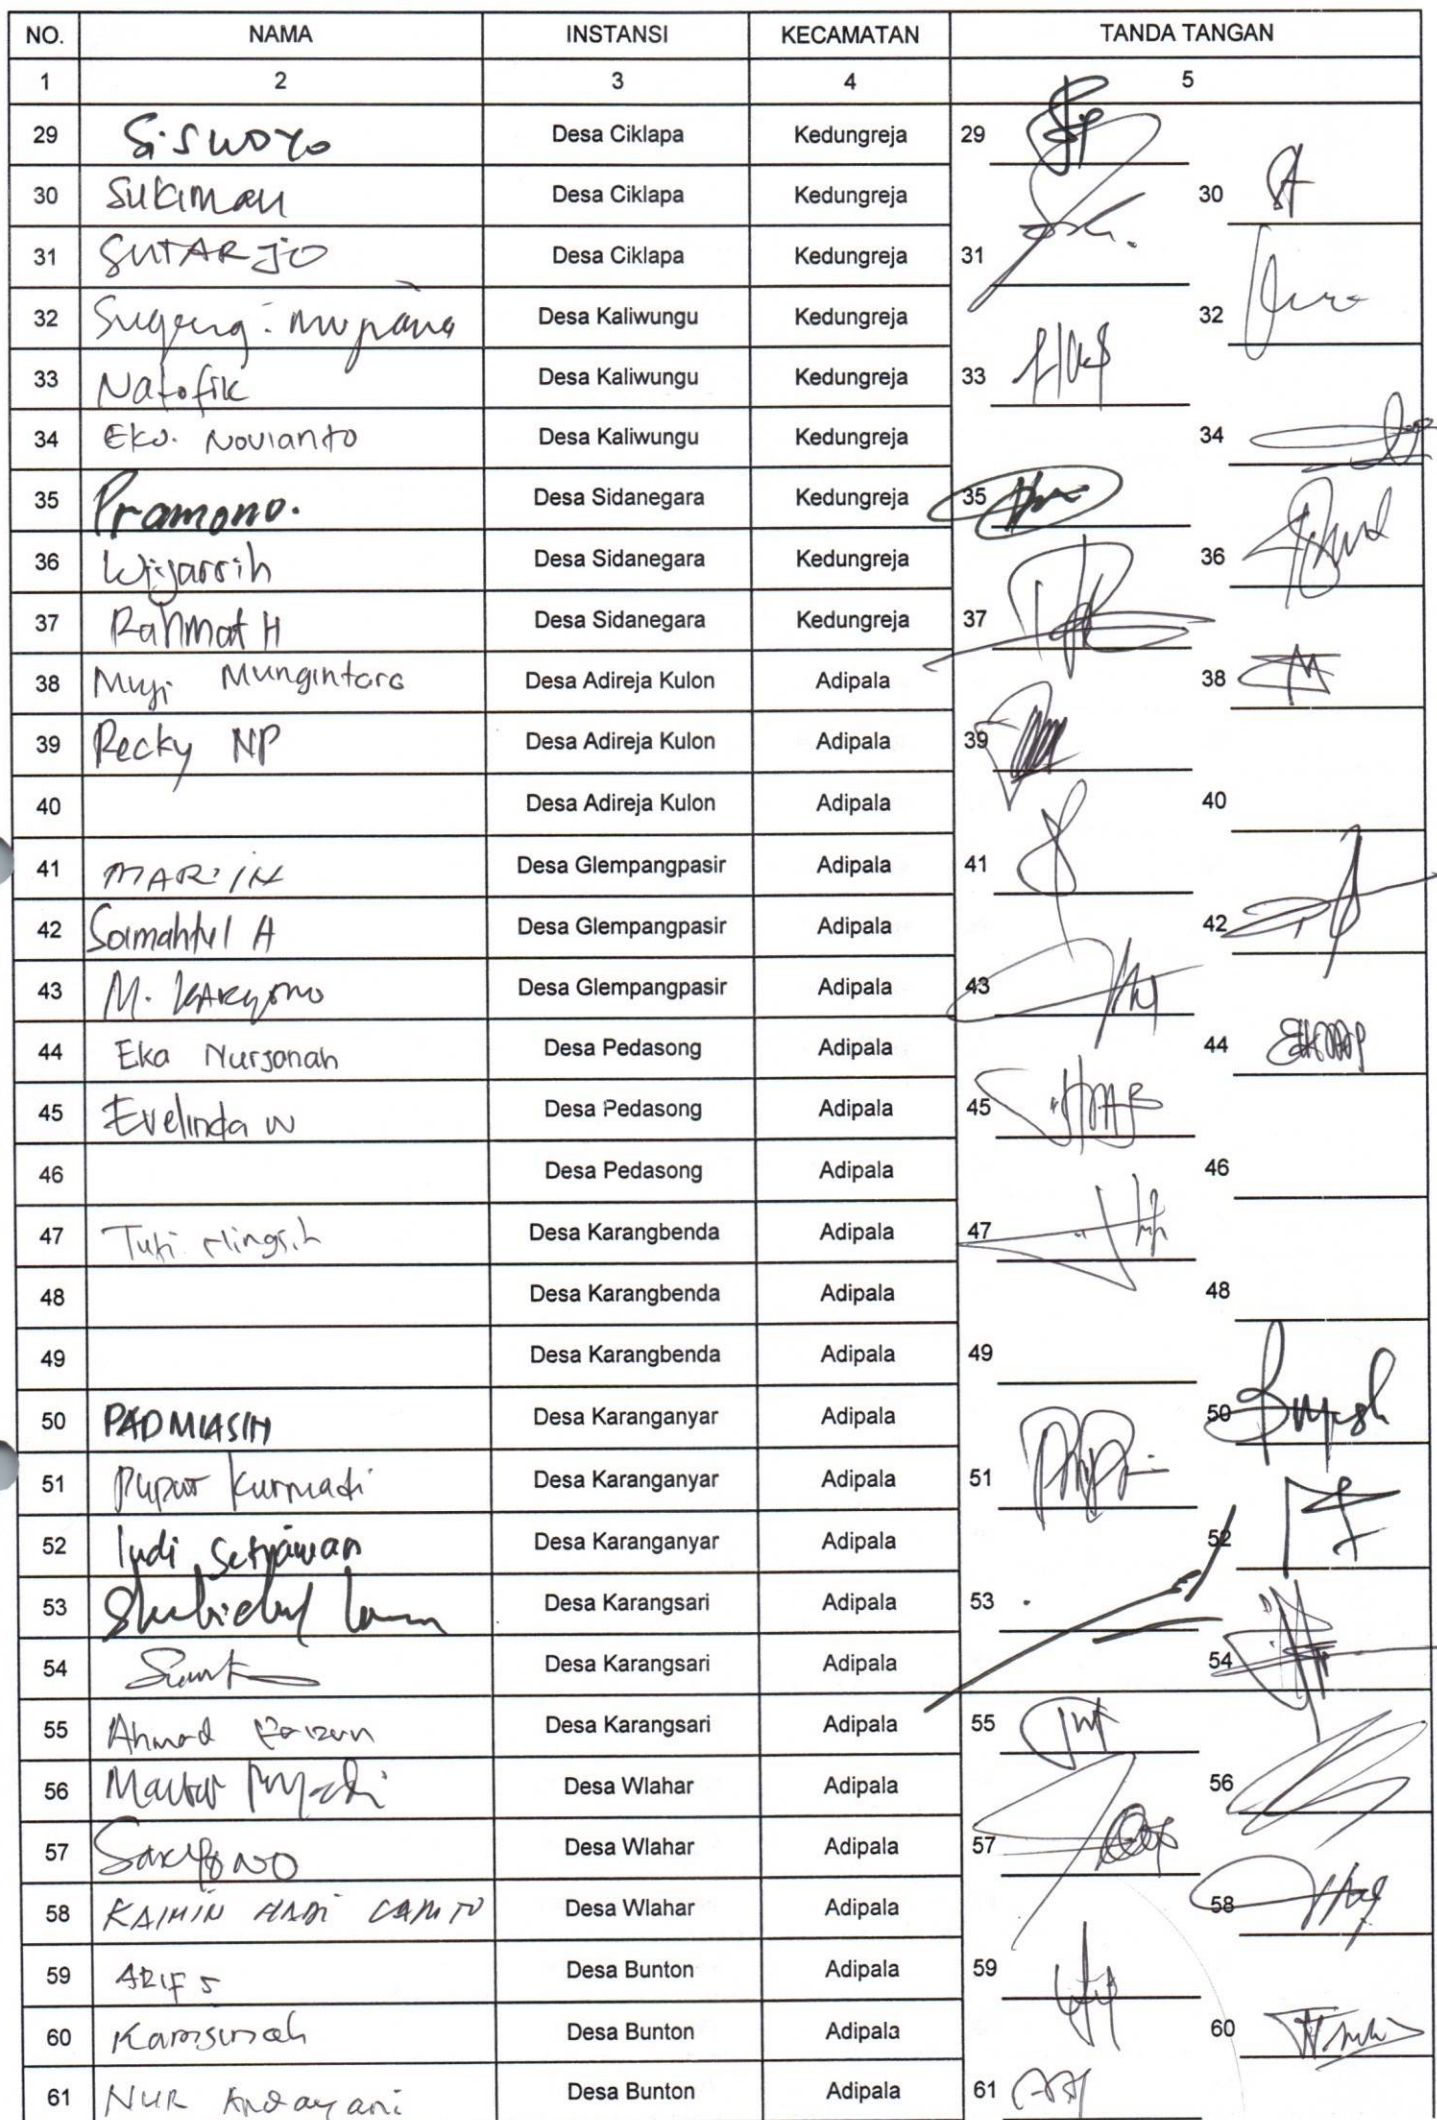 NO. NAMA INSTANSI KECAMATAN TANDA TANGAN
1 2 3 4 5
29 Siswoyo Desa Ciklapa Kedungreja 29
30 Sukiman Desa Ciklapa Kedungreja 30
31 SUTARJO Desa Ciklapa Kedungreja 31
32 Sugeng Desa Kaliwungu Kedungreja 32
33 Natofik Desa Kaliwungu Kedungreja 33
34 Eko. Novianto Desa Kaliwungu Kedungreja 34
35 Pramono. Desa Sidanegara Kedungreja 35
36 Wijarsih Desa Sidanegara Kedungreja 36
37 Rahmat H Desa Sidanegara Kedungreja 37
38 Muji Mungintoro Desa Adireja Kulon Adipala 38
39 Recky NP Desa Adireja Kulon Adipala 39
40 Desa Adireja Kulon Adipala 40
41 Desa Glempangpasir Adipala 41
42 Samahtul A Desa Glempangpasir Adipala 42
43 M. KARYONO Desa Glempangpasir Adipala 43
44 Eka Nurjanah Desa Pedasong Adipala 44
45 Evelinda W Desa Pedasong Adipala 45
46 Desa Pedasong Adipala 46
47 Tuti Desa Karangbenda Adipala 47
48 Desa Karangbenda Adipala 48
49 Desa Karangbenda Adipala 49
50 PADMIASIH Desa Karanganyar Adipala 50
51 Puput Kurniadi Desa Karanganyar Adipala 51
52 Indi Setiawan Desa Karanganyar Adipala 52
53 Desa Karangsari Adipala 53
54 Desa Karangsari Adipala 54
55 Ahmad Desa Karangsari Adipala 55
56 Desa Wlahar Adipala 56
57 Desa Wlahar Adipala 57
58 KAIMIN HADI Desa Wlahar Adipala 58
59 ARIF S Desa Bunton Adipala 59
60 Kamsinah Desa Bunton Adipala 60
61 NUR Andayani Desa Bunton Adipala 61